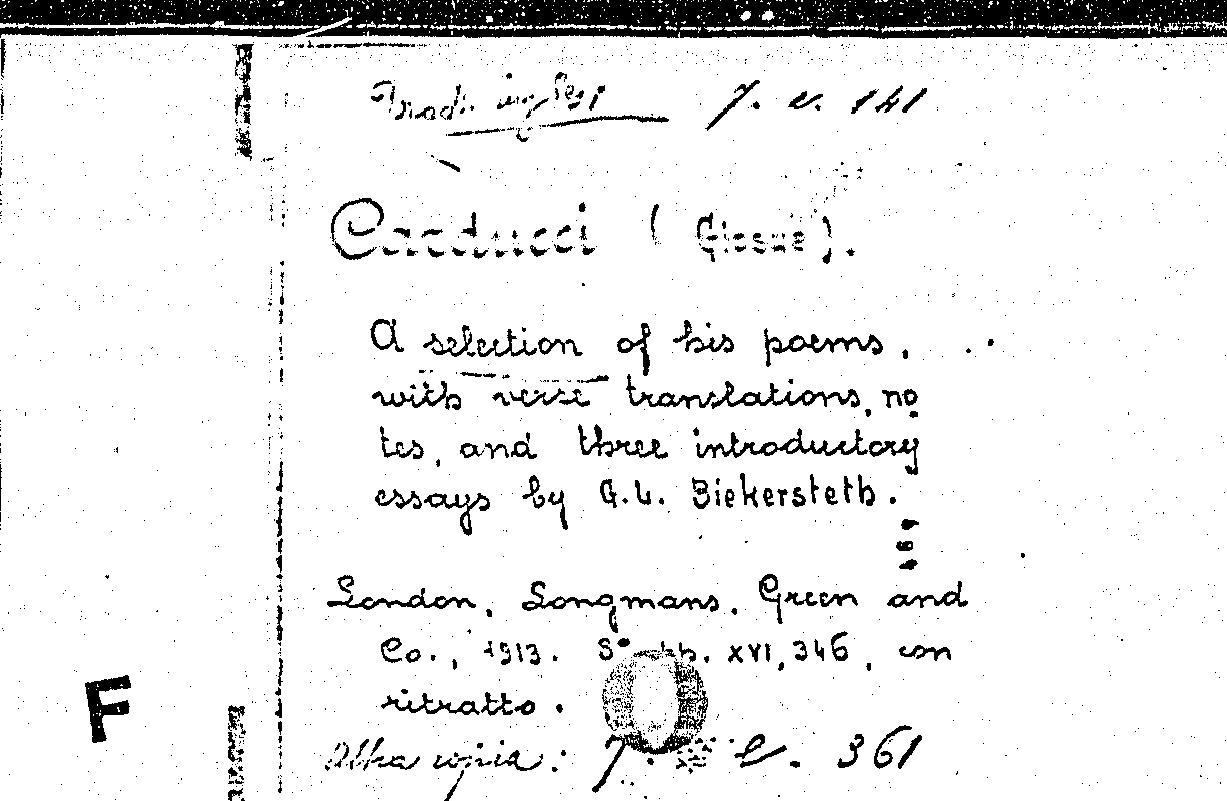 Trad. inglesi 7. e. 141
Carducci (Giosue).
A selection of his poems,
with verse translations, no
tes, and three introductory
essays by G. L. Bickersteth.
London, Longmans, Green and
Co., 1913. 8° pp. XVI, 346, con
ritratto.
Altra copia: 7. 361
F